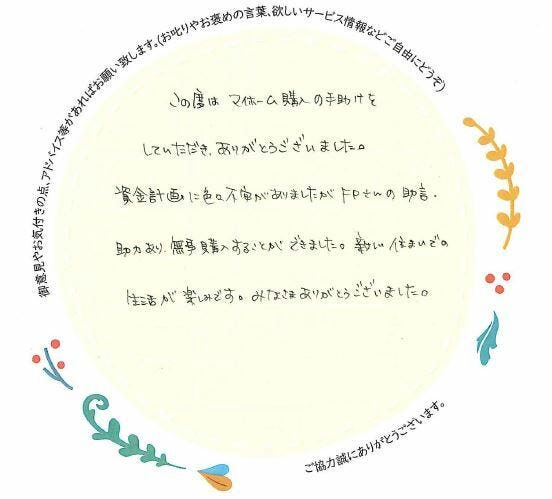 御意見やお気付きの点、アドバイス等があればお願い致します。(お叱りやお褒めの言葉、欲しいサービス情報などご自由にどうぞ)
この度は マイホーム購入の手助けを
していただき、ありがとうございました。
資金計画に色々不安がありましたが FPさんの助言・
助力あり、無事購入することができました。新しい住まいでの
生活が楽しみです。みなさまありがとうございました。
ご協力誠にありがとうございます。